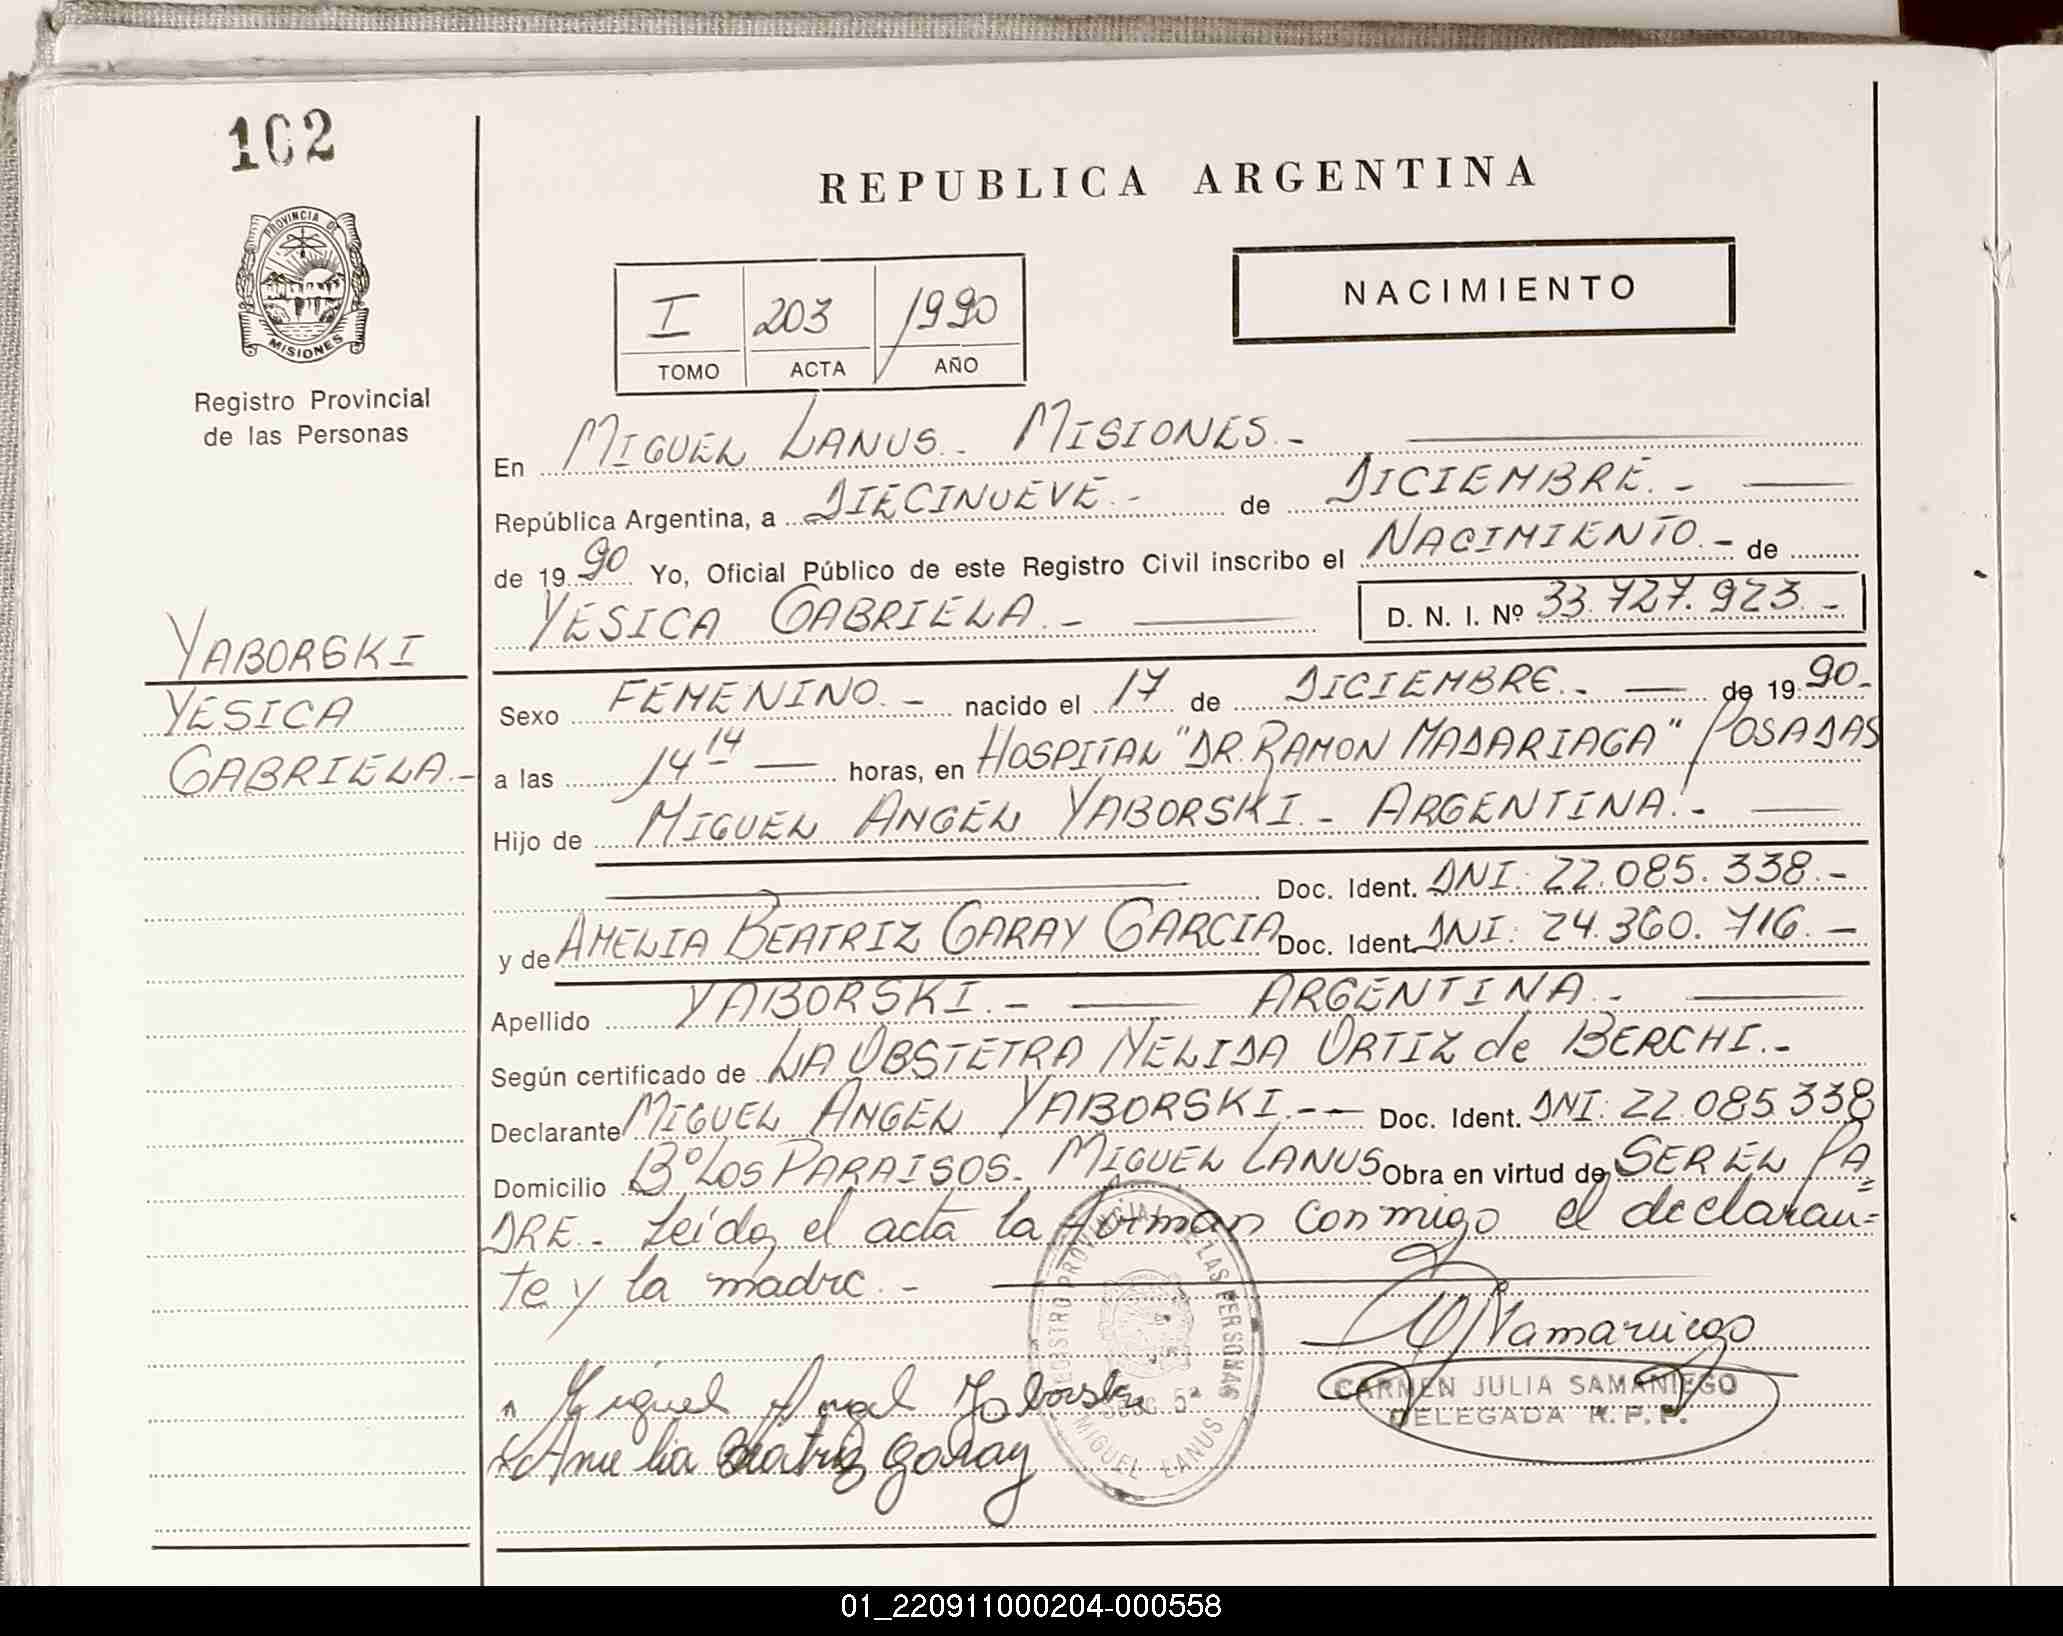 102
REPUBLICA ARGENTINA
PROVINCIA DE
MISIONES
I 203 1990
TOMO ACTA AÑO
NACIMIENTO
Registro Provincial
de las Personas
En MIGUEL LANUS.- MISIONES.-
República Argentina, a DIECINUEVE.- de DICIEMBRE.-
de 1990 Yo, Oficial Público de este Registro Civil inscribo el NACIMIENTO.- de
YESICA GABRIELA.- D. N. I. Nº 33.727.923.-
YABORSKI
YESICA
GABRIELA.-
Sexo FEMENINO.- nacido el 17 de DICIEMBRE.- de 1990.-
a las 14 14 horas, en HOSPITAL "DR. RAMON MADARIAGA" POSADAS
Hijo de MIGUEL ANGEL YABORSKI.- ARGENTINA.-
Doc. Ident. DNI: 22.085.338.-
y de AMELIA BEATRIZ GARAY GARCIA Doc. Ident. DNI: 24.360.716.-
Apellido YABORSKI.- ARGENTINA.-
Según certificado de LA OBSTETRA NELIDA ORTIZ de BERCHI.-
Declarante MIGUEL ANGEL YABORSKI.-- Doc. Ident. DNI: 22.085.338
Domicilio Bº LOS PARAISOS.- MIGUEL LANUS Obra en virtud de SER EL PA=
DRE.- Leída el acta la firman conmigo el declaran=
te y la madre.-
REGISTRO PROVINCIAL DE LAS PERSONAS
SECC. 5ª
MIGUEL LANUS
Miguel Angel Yaborski
Amelia Beatriz Garay
CARMEN JULIA SAMANIEGO
DELEGADA R.P.P.
01_220911000204-000558